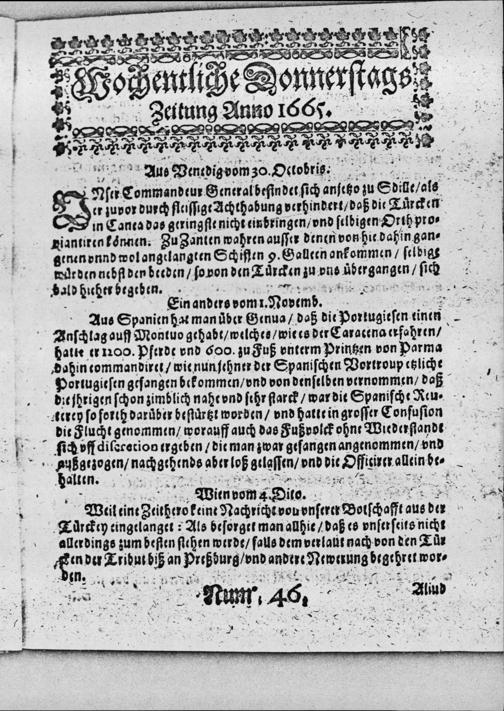 Wochentliche Donnerstags
Zeitung Anno 1665.
Aus Venedig vom 30. Octobris.
UNser Commandeur General befindet sich anjetzo zu Sdille / als
er zuvor durch fleissige Achthabung verhindert / daß die Türcken
in Canea das geringste nicht einbringen / und selbigen Orth pro-
viantiren können. Zu Zanten wahren ausser denen von hie dahin gan-
genen vnnd wol angelangten Schiffen 9. Galleen ankommen / selbige
würden nebst den beeden / so von den Türcken zu vns übergangen / sich
bald hieher begeben.
Ein anders vom 1. Novemb.
Aus Spanien hat man über Genua / daß die Portugiesen einen
Anschlag auff Montuo gehabt / welches / wie es der Caracena erfahren /
hatte er 1200. Pferde vnd 600. zu Fuß vnterm Printzen von Parma
dahin commandiret / wie nun jehner der Spanischen Vortroup etzliche
Portugiesen gefangen bekommen / und von denselben vernommen / daß
die jhrigen schon zimblich nahe vnd sehr starck / war die Spanische Reu-
terey so forth darüber bestürtzt worden / und hatte in grosser Confusion
die Flucht genommen / worauff auch das Fußvolck ohne Wiederstandt
sich vff discretion ergeben / die man zwar gefangen angenommen / vnd
außgezogen / nachgehends aber loß gelassen / vnd die Officirer allein be-
halten.
Wien vom 4. Dito.
Weil eine Zeithero keine Nachricht von vnserer Bottschafft aus der
Türckey eingelanget : Als besorget man allhie / daß es vnserseits nicht
allerdings zum besten stehen werde / falls dem verlaut nach von den Tür
cken der Tribut biß an Preßburg / vnd andere Newerung begehret wor-
den.
Num. 46.
Aliud